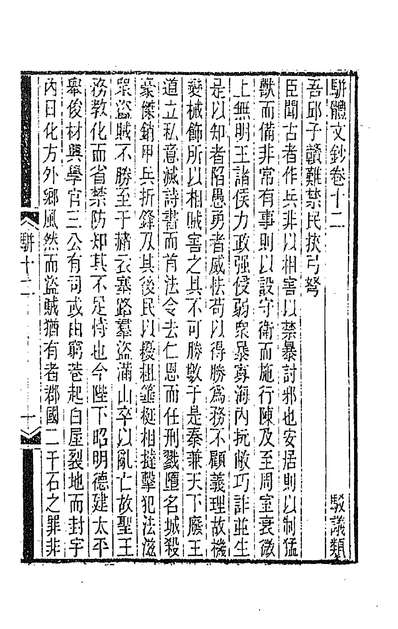 駢體文鈔卷十二
駮議類
吾邱子贛難禁民挾弓弩
臣聞古者作兵非以相害以禁暴討邪也安居則以制猛
獸而備非常有事則以設守衛而施行陳及至周室衰微
上無明王諸侯力政强侵弱衆暴寡海內抏敝巧詐並生
是以知者陷愚勇者威怯苟以得勝爲務不顧義理故機
變械飾所以相賊害之具不可勝數于是秦兼天下廢王
道立私意滅詩書而首法令去仁恩而任刑戮墮名城殺
豪傑銷甲兵折鋒刃其後民以耰鉏箠梃相撻擊犯法滋
衆盜賊不勝至于赭衣塞路羣盜滿山卒以亂亡故聖王
務教化而省禁防知其不足恃也今陛下昭明德建太平
舉俊材興學官三公有司或由窮巷起白屋裂地而封宇
內日化方外鄉風然而盜賊猶有者郡國二千石之罪非
駢十二
一